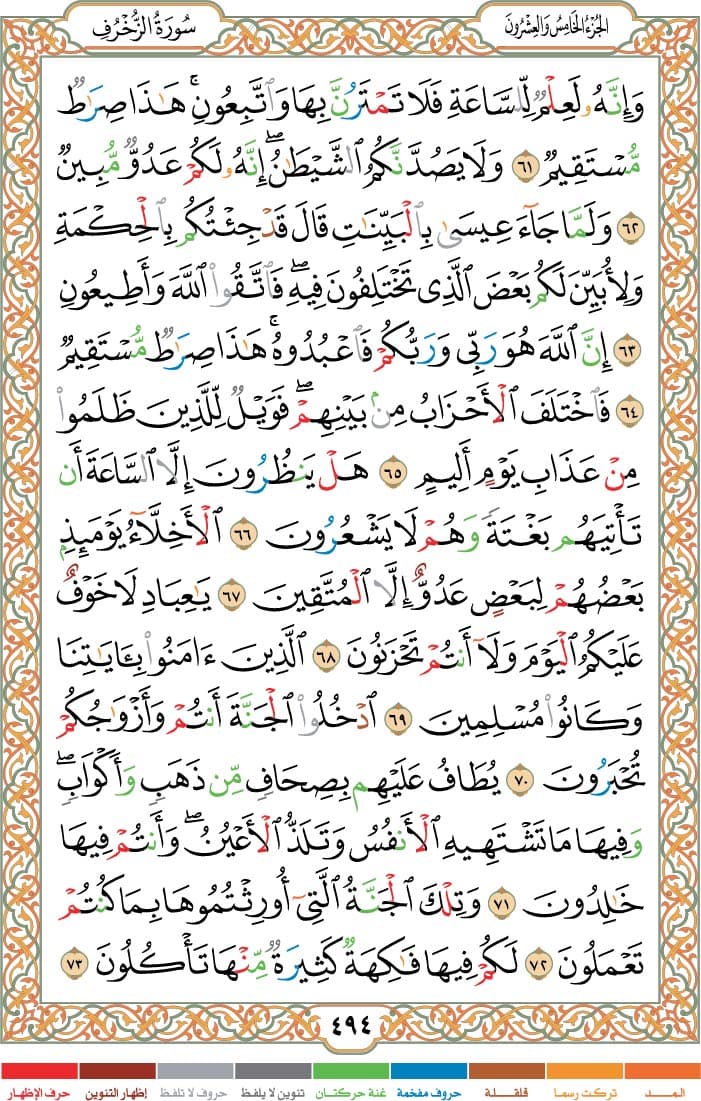 الجزء الخامس والعشرون
سورة الزخرف
وَإِنَّهُۥ لَعِلْمٌ لِّلسَّاعَةِ فَلَا تَمْتَرُنَّ بِهَا وَٱتَّبِعُونِ ۚ هَـٰذَا صِرَٰطٌ
مُّسْتَقِيمٌ ٦١ وَلَا يَصُدَّنَّكُمُ ٱلشَّيْطَـٰنُ ۖ إِنَّهُۥ لَكُمْ عَدُوٌّ مُّبِينٌ
٦٢ وَلَمَّا جَآءَ عِيسَىٰ بِٱلْبَيِّنَـٰتِ قَالَ قَدْ جِئْتُكُم بِٱلْحِكْمَةِ
وَلِأُبَيِّنَ لَكُم بَعْضَ ٱلَّذِى تَخْتَلِفُونَ فِيهِ ۖ فَٱتَّقُوا۟ ٱللَّهَ وَأَطِيعُونِ
٦٣ إِنَّ ٱللَّهَ هُوَ رَبِّى وَرَبُّكُمْ فَٱعْبُدُوهُ ۚ هَـٰذَا صِرَٰطٌ مُّسْتَقِيمٌ
٦٤ فَٱخْتَلَفَ ٱلْأَحْزَابُ مِنۢ بَيْنِهِمْ ۖ فَوَيْلٌ لِّلَّذِينَ ظَلَمُوا۟
مِنْ عَذَابِ يَوْمٍ أَلِيمٍ ٦٥ هَلْ يَنظُرُونَ إِلَّا ٱلسَّاعَةَ أَن
تَأْتِيَهُم بَغْتَةً وَهُمْ لَا يَشْعُرُونَ ٦٦ ٱلْأَخِلَّآءُ يَوْمَئِذٍۭ
بَعْضُهُمْ لِبَعْضٍ عَدُوٌّ إِلَّا ٱلْمُتَّقِينَ ٦٧ يَـٰعِبَادِ لَا خَوْفٌ
عَلَيْكُمُ ٱلْيَوْمَ وَلَآ أَنتُمْ تَحْزَنُونَ ٦٨ ٱلَّذِينَ ءَامَنُوا۟ بِـَٔايَـٰتِنَا
وَكَانُوا۟ مُسْلِمِينَ ٦٩ ٱدْخُلُوا۟ ٱلْجَنَّةَ أَنتُمْ وَأَزْوَٰجُكُمْ
تُحْبَرُونَ ٧٠ يُطَافُ عَلَيْهِم بِصِحَافٍ مِّن ذَهَبٍ وَأَكْوَابٍ ۖ
وَفِيهَا مَا تَشْتَهِيهِ ٱلْأَنفُسُ وَتَلَذُّ ٱلْأَعْيُنُ ۖ وَأَنتُمْ فِيهَا
خَـٰلِدُونَ ٧١ وَتِلْكَ ٱلْجَنَّةُ ٱلَّتِىٓ أُورِثْتُمُوهَا بِمَا كُنتُمْ
تَعْمَلُونَ ٧٢ لَكُمْ فِيهَا فَـٰكِهَةٌ كَثِيرَةٌ مِّنْهَا تَأْكُلُونَ ٧٣
٤٩٤
المــد تركت رسما قلقلة حروف مفخمة غنة حركتان تنوين لا يلفظ حروف لا تلفظ إظهار التنوين حرف الإظهار